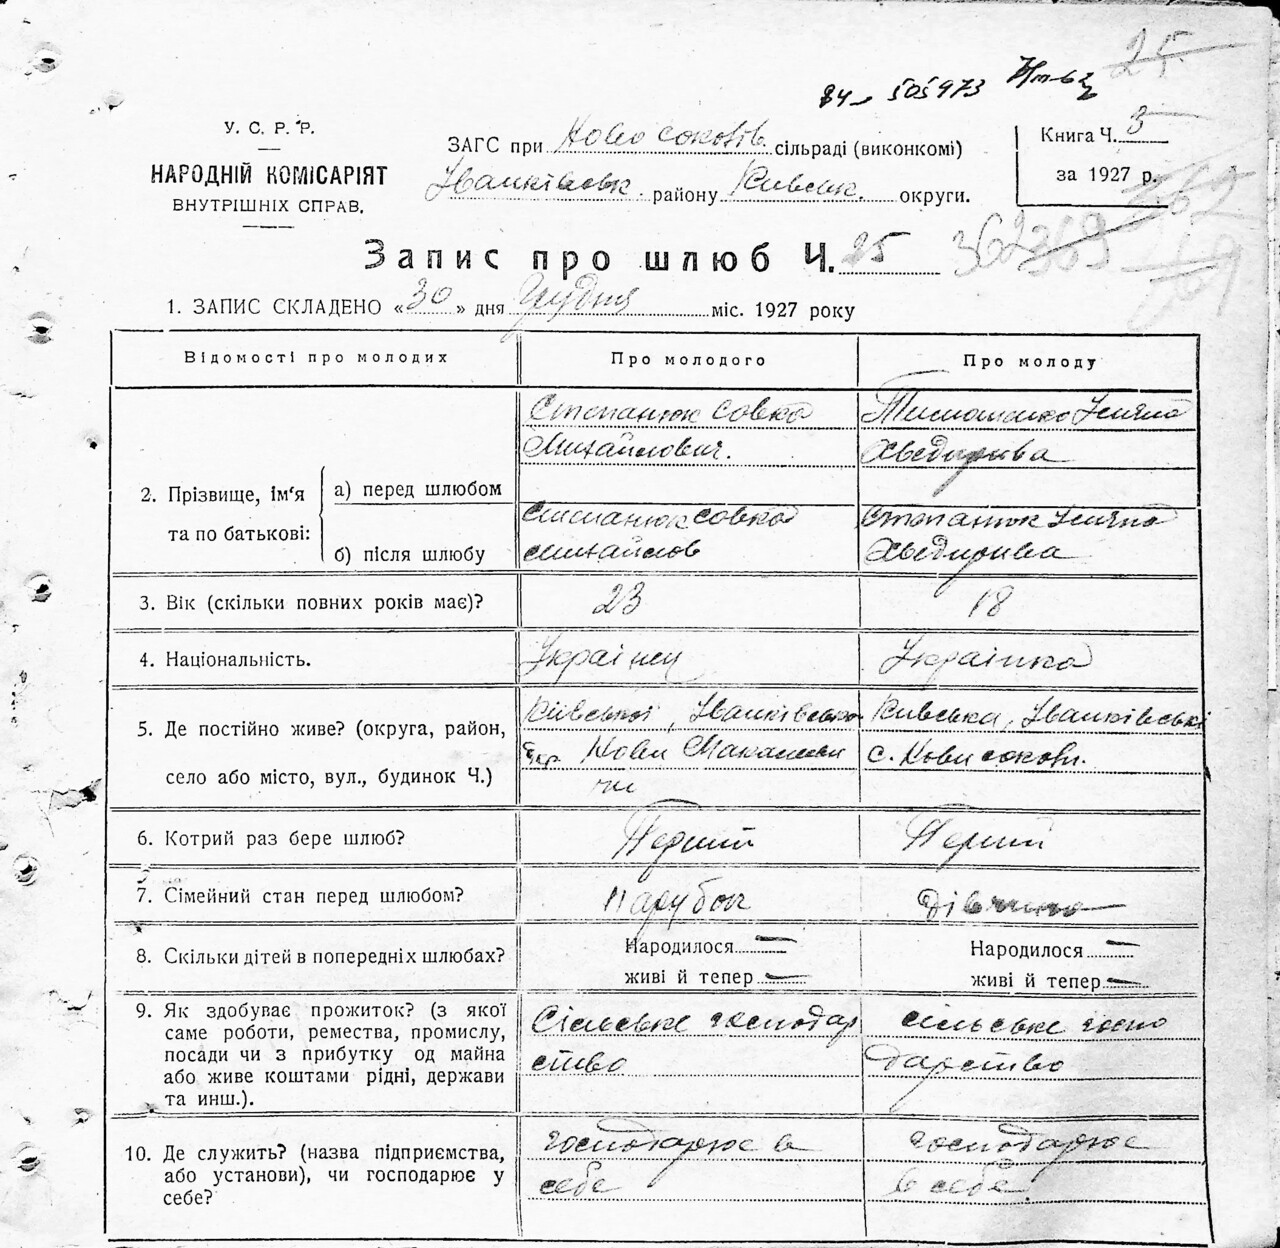 25
505973
У. С. Р. Р.
НАРОДНІЙ КОМІСАРІЯТ
ВНУТРІШНІХ СПРАВ.
ЗАГС приНово соковів сільраді (виконкомі)
Іванківськ. району Київськ. округи.
Книга Ч. 3
за 1927 р.
Запис про шлюб Ч. 25
362 369
1. ЗАПИС СКЛАДЕНО «30» дня Грудня міс. 1927 року
Відомості про молодих
Про молодого
Про молоду
2. Прізвище, ім'я
та по батькові:
а) перед шлюбом
Степанюк Совка
Михайлович.
Тимошенко Уляна
Хведирівна
б) після шлюбу
Степанюк Совка
Михайлов
Степанюк Уляна
Хведирівна
3. Вік (скільки повних років має)?
23
18
4. Національність.
Українец
Українка
5. Де постійно живе? (округа, район,
село або місто, вул., будинок Ч.)
Київської, Іванківсько
Нови Макалеви
чи
Київська, Іванківські
с. Нови сокови.
6. Котрий раз бере шлюб?
Перший
Перший
7. Сімейний стан перед шлюбом?
Парубок
Дівчина
8. Скільки дітей в попередніх шлюбах?
Народилося —
живі й тепер —
Народилося —
живі й тепер —
9. Як здобуває прожиток? (з якої
саме роботи, ремества, промислу,
посади чи з прибутку од майна
або живе коштами рідні, держави
та инш.).
Сільське господар
ство
сільське госпо
дарство
10. Де служить? (назва підприємства,
або установи), чи господарює у
себе?
господарює в
себе
господарює
в себе.